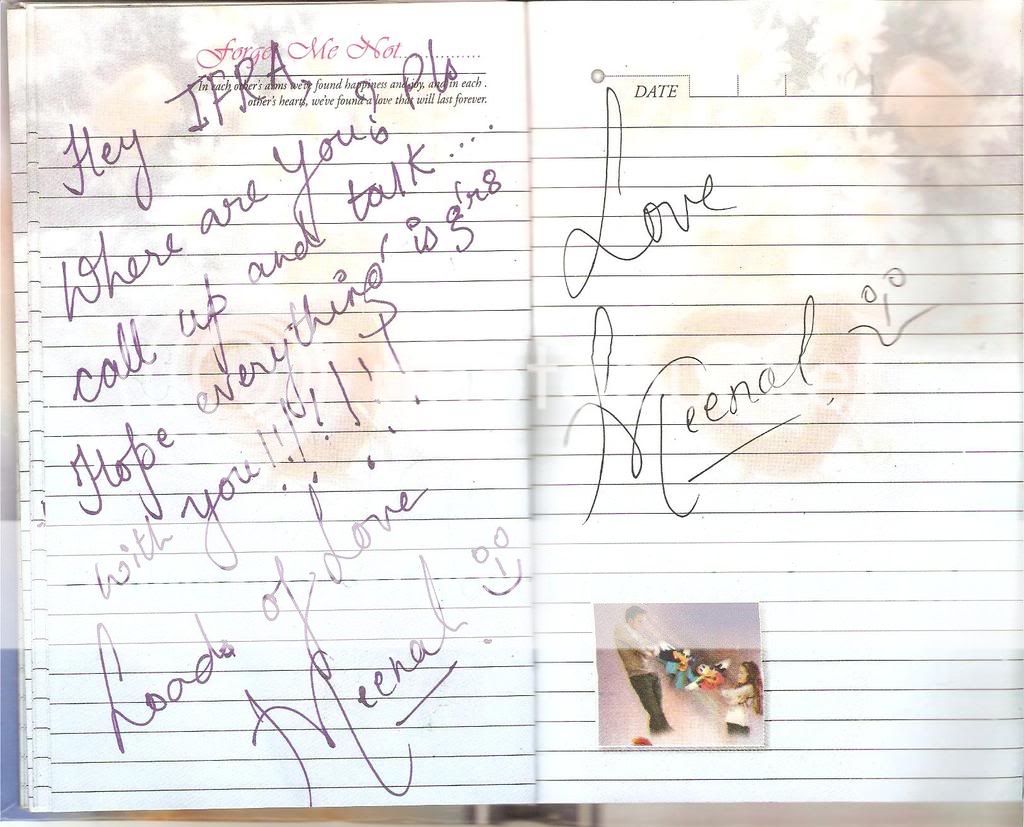 Forget Me Not............
In each other's arms we've found happiness and joy, and in each
other's hearts, we've found a love that will last forever.
Hey IFRA,
Where are you? Pls
call up and talk....
Hope everything is
with you!!!!!!
Loads of Love
Meenal
DATE
Love
Meenal